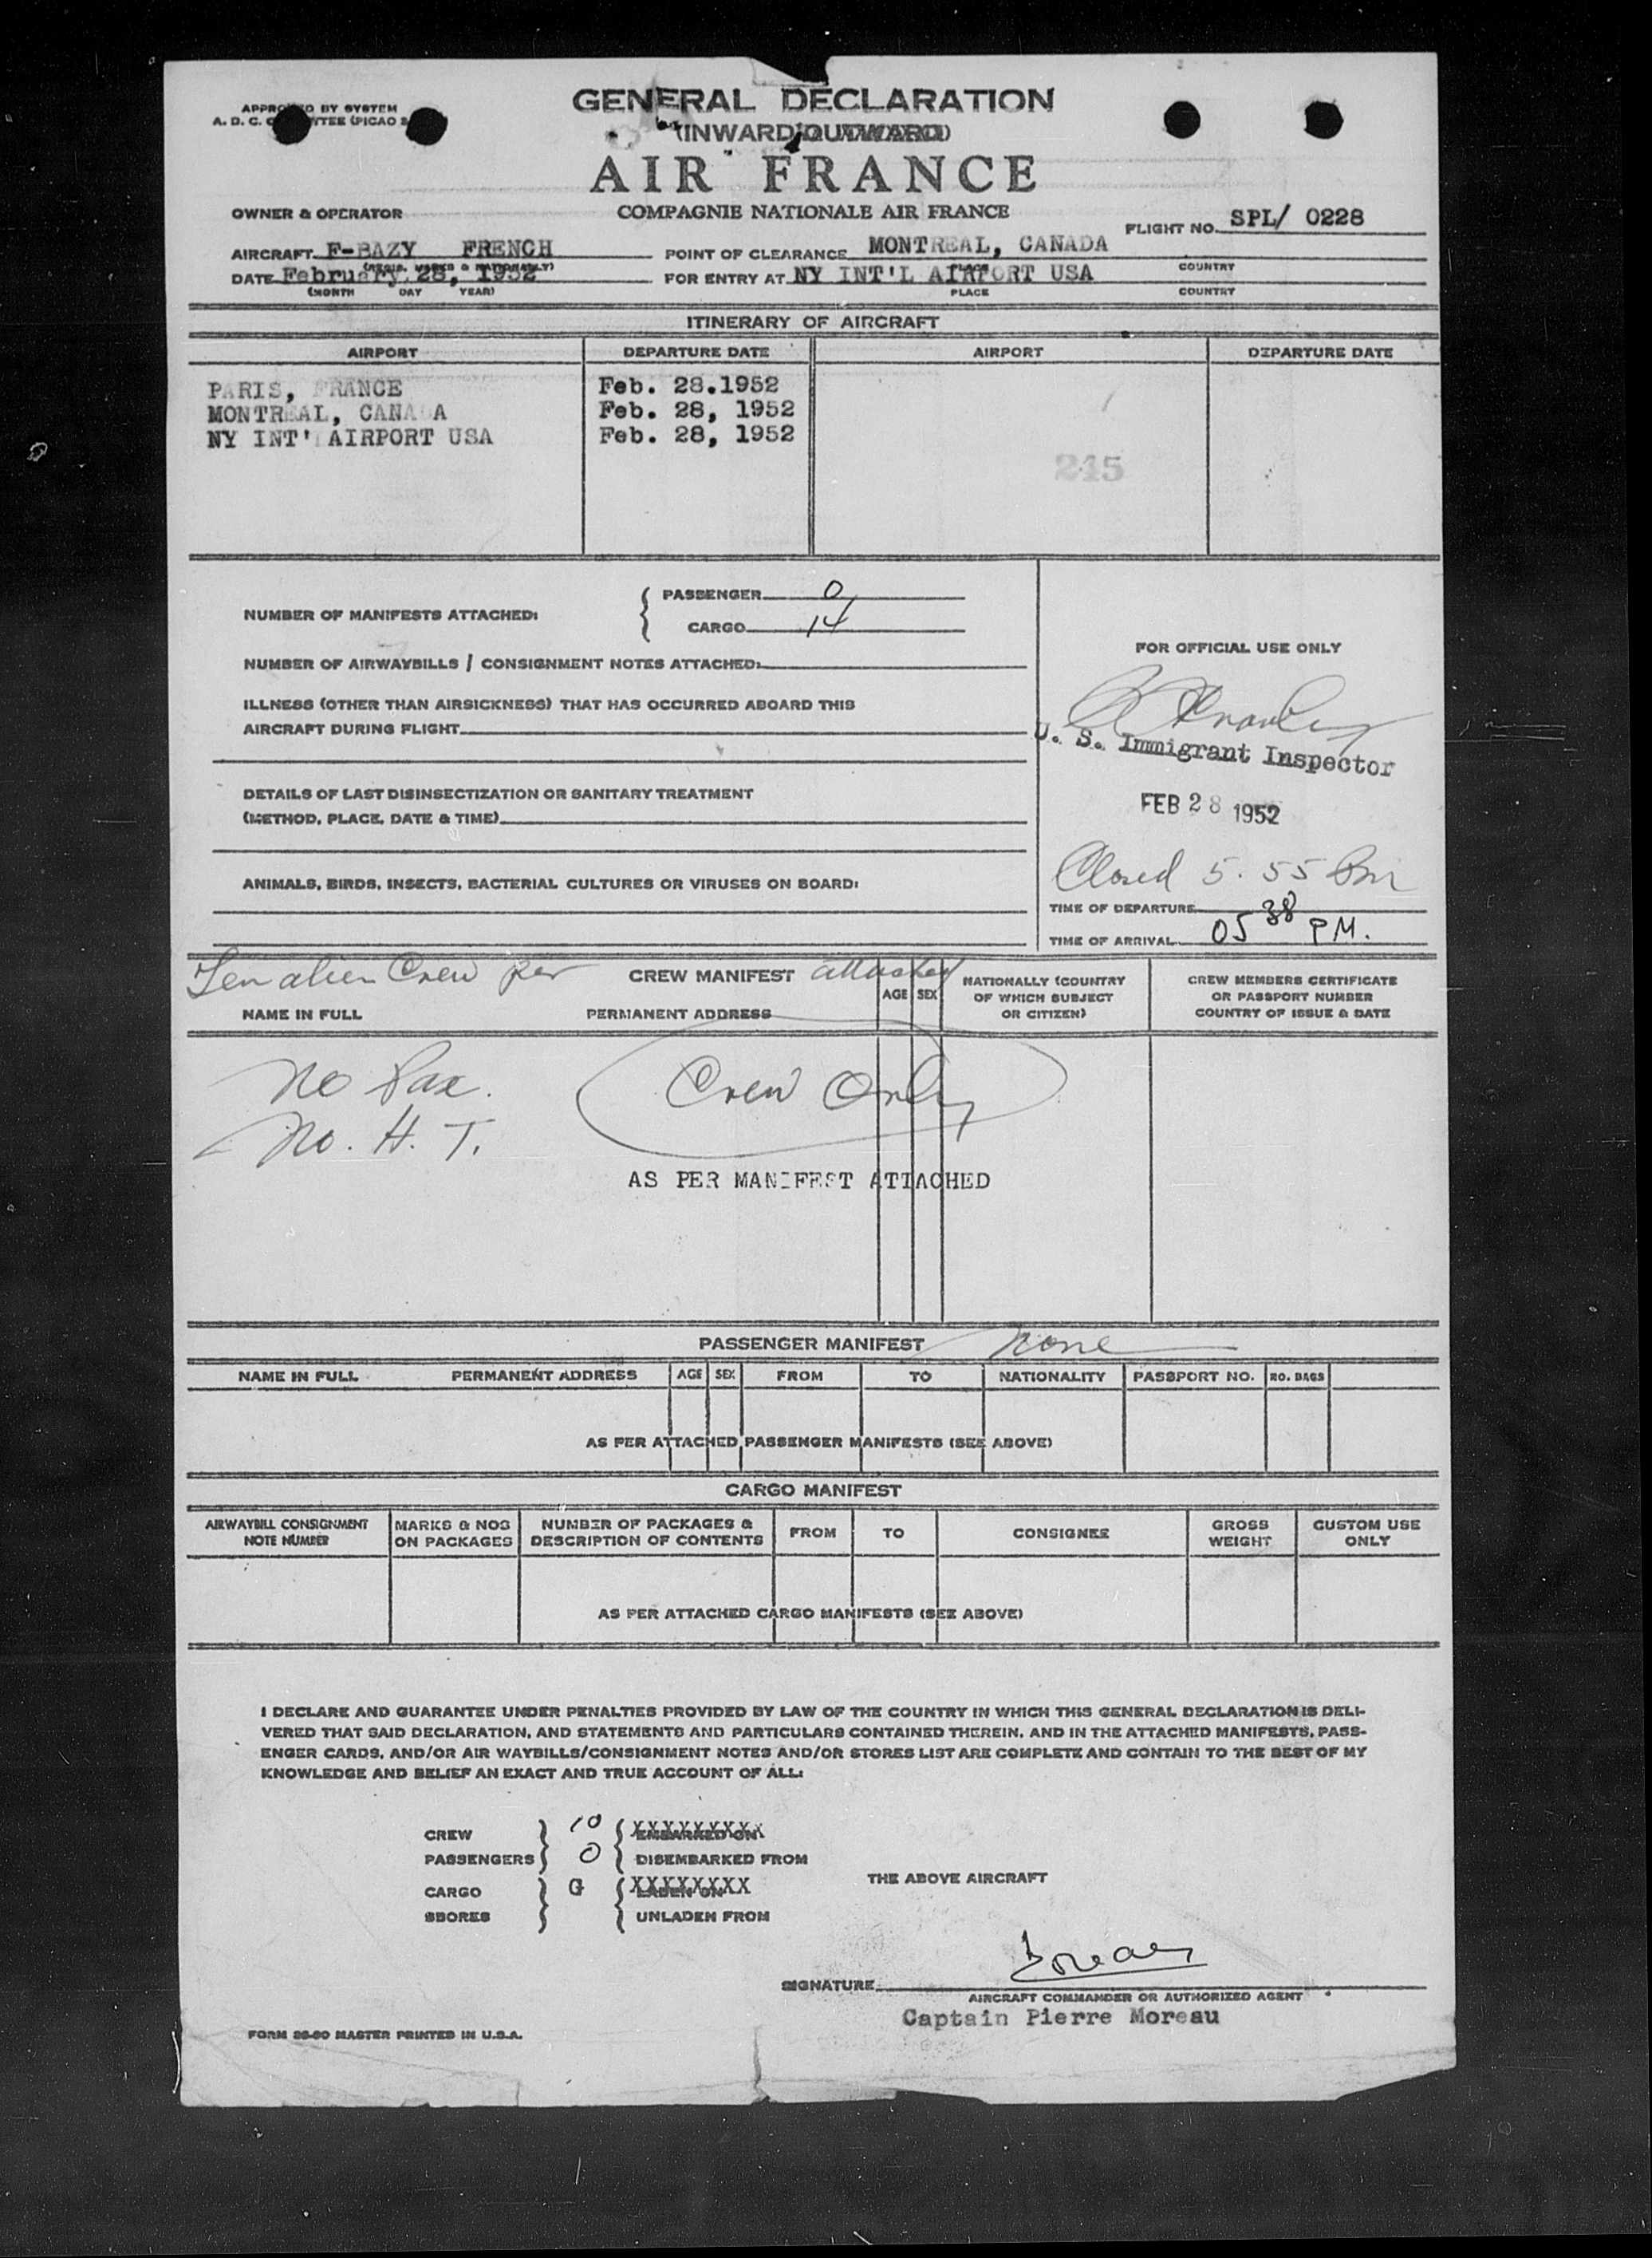 APPROVED BY SYSTEM
A. D. C. COMMITTEE (PICAO
GENERAL DECLARATION
(INWARD/OUTWARD)
AIR FRANCE
OWNER & OPERATOR
COMPAGNIE NATIONALE AIR FRANCE
FLIGHT NO. SPL/ 0228
AIRCRAFT F-BAZY FRENCH
POINT OF CLEARANCE MONTREAL, CANADA
(REGIS. MARKS & NATIONALITY)
PLACE COUNTRY
DATE February 28, 1952
FOR ENTRY AT NY INT'L AIRPORT USA
(MONTH DAY YEAR)
PLACE COUNTRY
ITINERARY OF AIRCRAFT
AIRPORT DEPARTURE DATE AIRPORT DEPARTURE DATE
PARIS, FRANCE Feb. 28.1952
MONTREAL, CANADA Feb. 28, 1952
NY INT' AIRPORT USA Feb. 28, 1952
245
NUMBER OF MANIFESTS ATTACHED:
PASSENGER 0
CARGO 14
NUMBER OF AIRWAYBILLS / CONSIGNMENT NOTES ATTACHED:
ILLNESS (OTHER THAN AIRSICKNESS) THAT HAS OCCURRED ABOARD THIS
AIRCRAFT DURING FLIGHT
DETAILS OF LAST DISINSECTIZATION OR SANITARY TREATMENT
(METHOD, PLACE, DATE & TIME)
ANIMALS, BIRDS, INSECTS, BACTERIAL CULTURES OR VIRUSES ON BOARD:
FOR OFFICIAL USE ONLY
U. S. Immigrant Inspector
FEB 28 1952
Closed 5.55 Pm
TIME OF DEPARTURE
TIME OF ARRIVAL 05 38 PM.
Ten alien Crew per CREW MANIFEST attached
NAME IN FULL PERMANENT ADDRESS AGE SEX
NATIONALLY (COUNTRY
OF WHICH SUBJECT
OR CITIZEN)
CREW MEMBERS CERTIFICATE
OR PASSPORT NUMBER
COUNTRY OF ISSUE & DATE
No Pax. Crew Only
No. H. T.
AS PER MANIFEST ATTACHED
PASSENGER MANIFEST None
NAME IN FULL PERMANENT ADDRESS AGE SEX FROM TO NATIONALITY PASSPORT NO. NO. BAGS
AS PER ATTACHED PASSENGER MANIFESTS (SEE ABOVE)
CARGO MANIFEST
AIRWAYBILL CONSIGNMENT
NOTE NUMBER
MARKS & NOS
ON PACKAGES
NUMBER OF PACKAGES &
DESCRIPTION OF CONTENTS
FROM TO CONSIGNEE
GROSS
WEIGHT
CUSTOM USE
ONLY
AS PER ATTACHED CARGO MANIFESTS (SEE ABOVE)
I DECLARE AND GUARANTEE UNDER PENALTIES PROVIDED BY LAW OF THE COUNTRY IN WHICH THIS GENERAL DECLARATION IS DELI-
VERED THAT SAID DECLARATION, AND STATEMENTS AND PARTICULARS CONTAINED THEREIN, AND IN THE ATTACHED MANIFESTS, PASS-
ENGER CARDS, AND/OR AIR WAYBILLS/CONSIGNMENT NOTES AND/OR STORES LIST ARE COMPLETE AND CONTAIN TO THE BEST OF MY
KNOWLEDGE AND BELIEF AN EXACT AND TRUE ACCOUNT OF ALL:
CREW 10 EMBARKED ON
PASSENGERS 0 DISEMBARKED FROM
THE ABOVE AIRCRAFT
CARGO G LADEN ON
SBORES UNLADEN FROM
SIGNATURE Moreau
AIRCRAFT COMMANDER OR AUTHORIZED AGENT
Captain Pierre Moreau
FORM 26-90 MASTER PRINTED IN U.S.A.